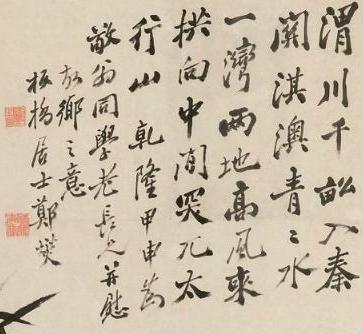 渭川千畝入秦
關淇澳青〻水
一灣兩地高風來
拱向中間突兀太
行山乾隆甲申為
敬翁同學老長兄并慰
故鄉之意
板橋居士鄭燮